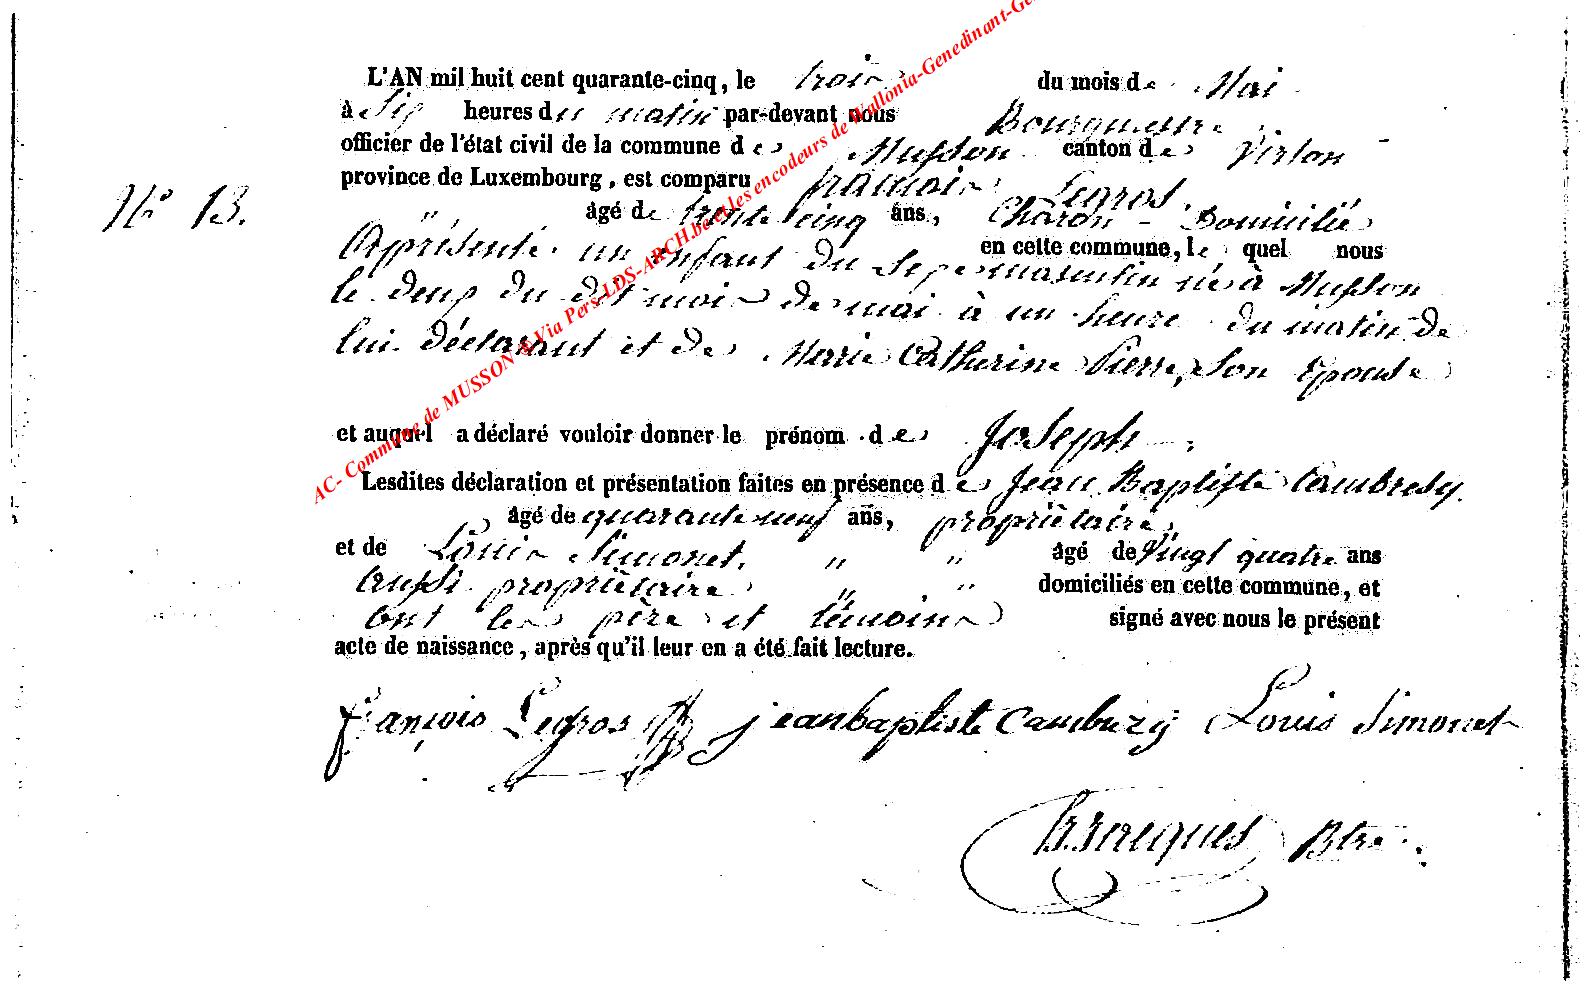 L'AN mil huit cent quarante-cinq, le trois du mois de Mai
à Six heures du matin par-devant nous Bourgmestre
officier de l'état civil de la commune de Musson canton de Virton
province de Luxembourg, est comparu françois Legros,
N° 13.
âgé de trente cinq ans, Charon Domicilié
en cette commune, le quel nous
Représenté un enfant du Sexe masculin né à Musson
le deux du dit mois de mai à un heure du matin de
lui déclarant et de Marie Catherine Pierre, Son Epouse
et auquel a déclaré vouloir donner le prénom de Joseph
Lesdites déclaration et présentation faites en présence de Jean Baptiste Cambresy
âgé de quarante neuf ans, propriètaire
et de Louis Simonet, " " âgé de Vingt quatre ans
Aussi propriètaire " " domiciliés en cette commune, et
ont les père et témoins signé avec nous le présent
acte de naissance, après qu'il leur en a été fait lecture.
françois Legros jeanbaptiste Cambrezÿ Louis Simonet
Jacques Btre
AC- Commune de MUSSON & Via Pers-LDS-ARCH.be et les encodeurs de Wallonia-Genedinant-Ge